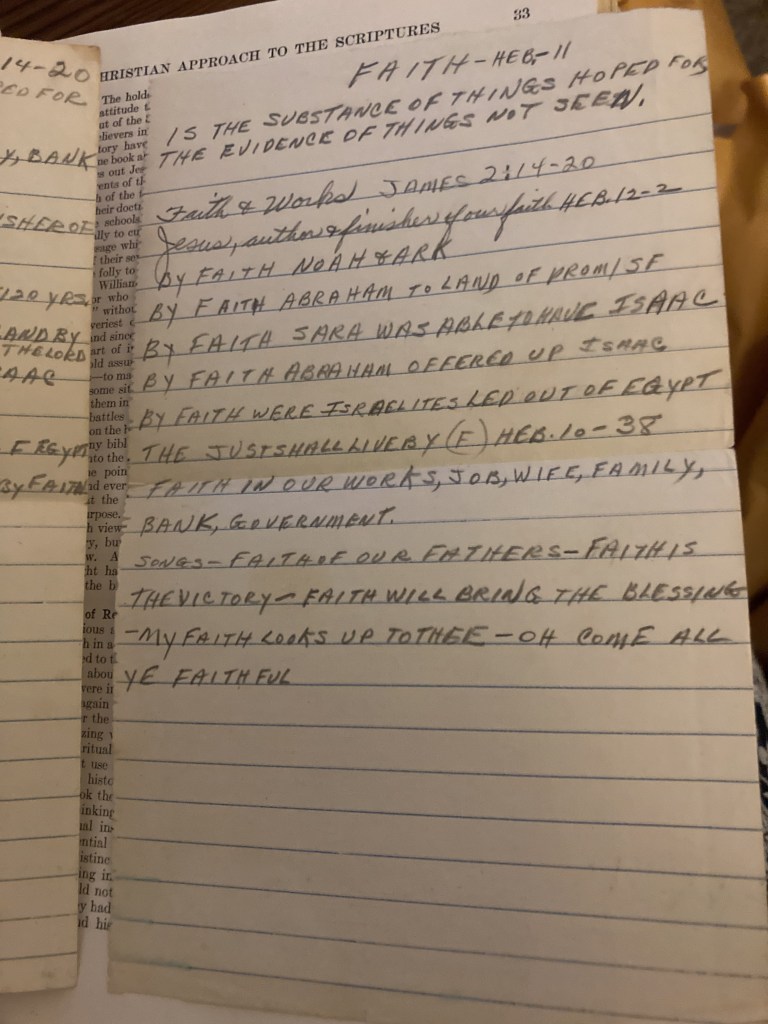 14-20
ED FOR
Y, BANK
SHER OF
120 YRS.
LAND BY
THE LORD
AAC
F EGYPT
BY FAITH
HRISTIAN APPROACH TO THE SCRIPTURES 33
The hold
attitude
ut of the
believers in
tory have
ne book
s out Jes
ents of th
h of the
heir doct
schools
lly to cu
eage whi
their se
folly to
William
or who
withou
veriest
and since
art of i
ld assu
—to ma
some sit
them in
battles
on the
ny bibl
into the
e poin
nd ever
t the
rpose.
view
y, bu
w. A
ht ha
the b
of Re
ious
h in a
ed to
abou
were in
again
r the
zing
ritual
t use
histo
ok the
inking
al in
ntial
istine
ing in
ld not
y had
d his
FAITH-HEB-11
IS THE SUBSTANCE OF THINGS HOPED FOR
THE EVIDENCE OF THINGS NOT SEEN.
Faith & Works JAMES 2:14-20
Jesus, author & finisher of our faith HEB. 12-2
BY FAITH NOAH & ARK
BY FAITH ABRAHAM TO LAND OF PROMISE
BY FAITH SARA WAS ABLE TO HAVE ISAAC
BY FAITH ABRAHAM OFFERED UP ISAAC
BY FAITH WERE ISRAELITES LED OUT OF EGYPT
THE JUST SHALL LIVE BY (F) HEB. 10-38
FAITH IN OUR WORKS, JOB, WIFE, FAMILY,
BANK, GOVERNMENT.
SONGS-FAITH OF OUR FATHERS-FAITH IS
THE VICTORY-FAITH WILL BRING THE BLESSING
-MY FAITH LOOKS UP TO THEE-OH COME ALL
YE FAITHFUL